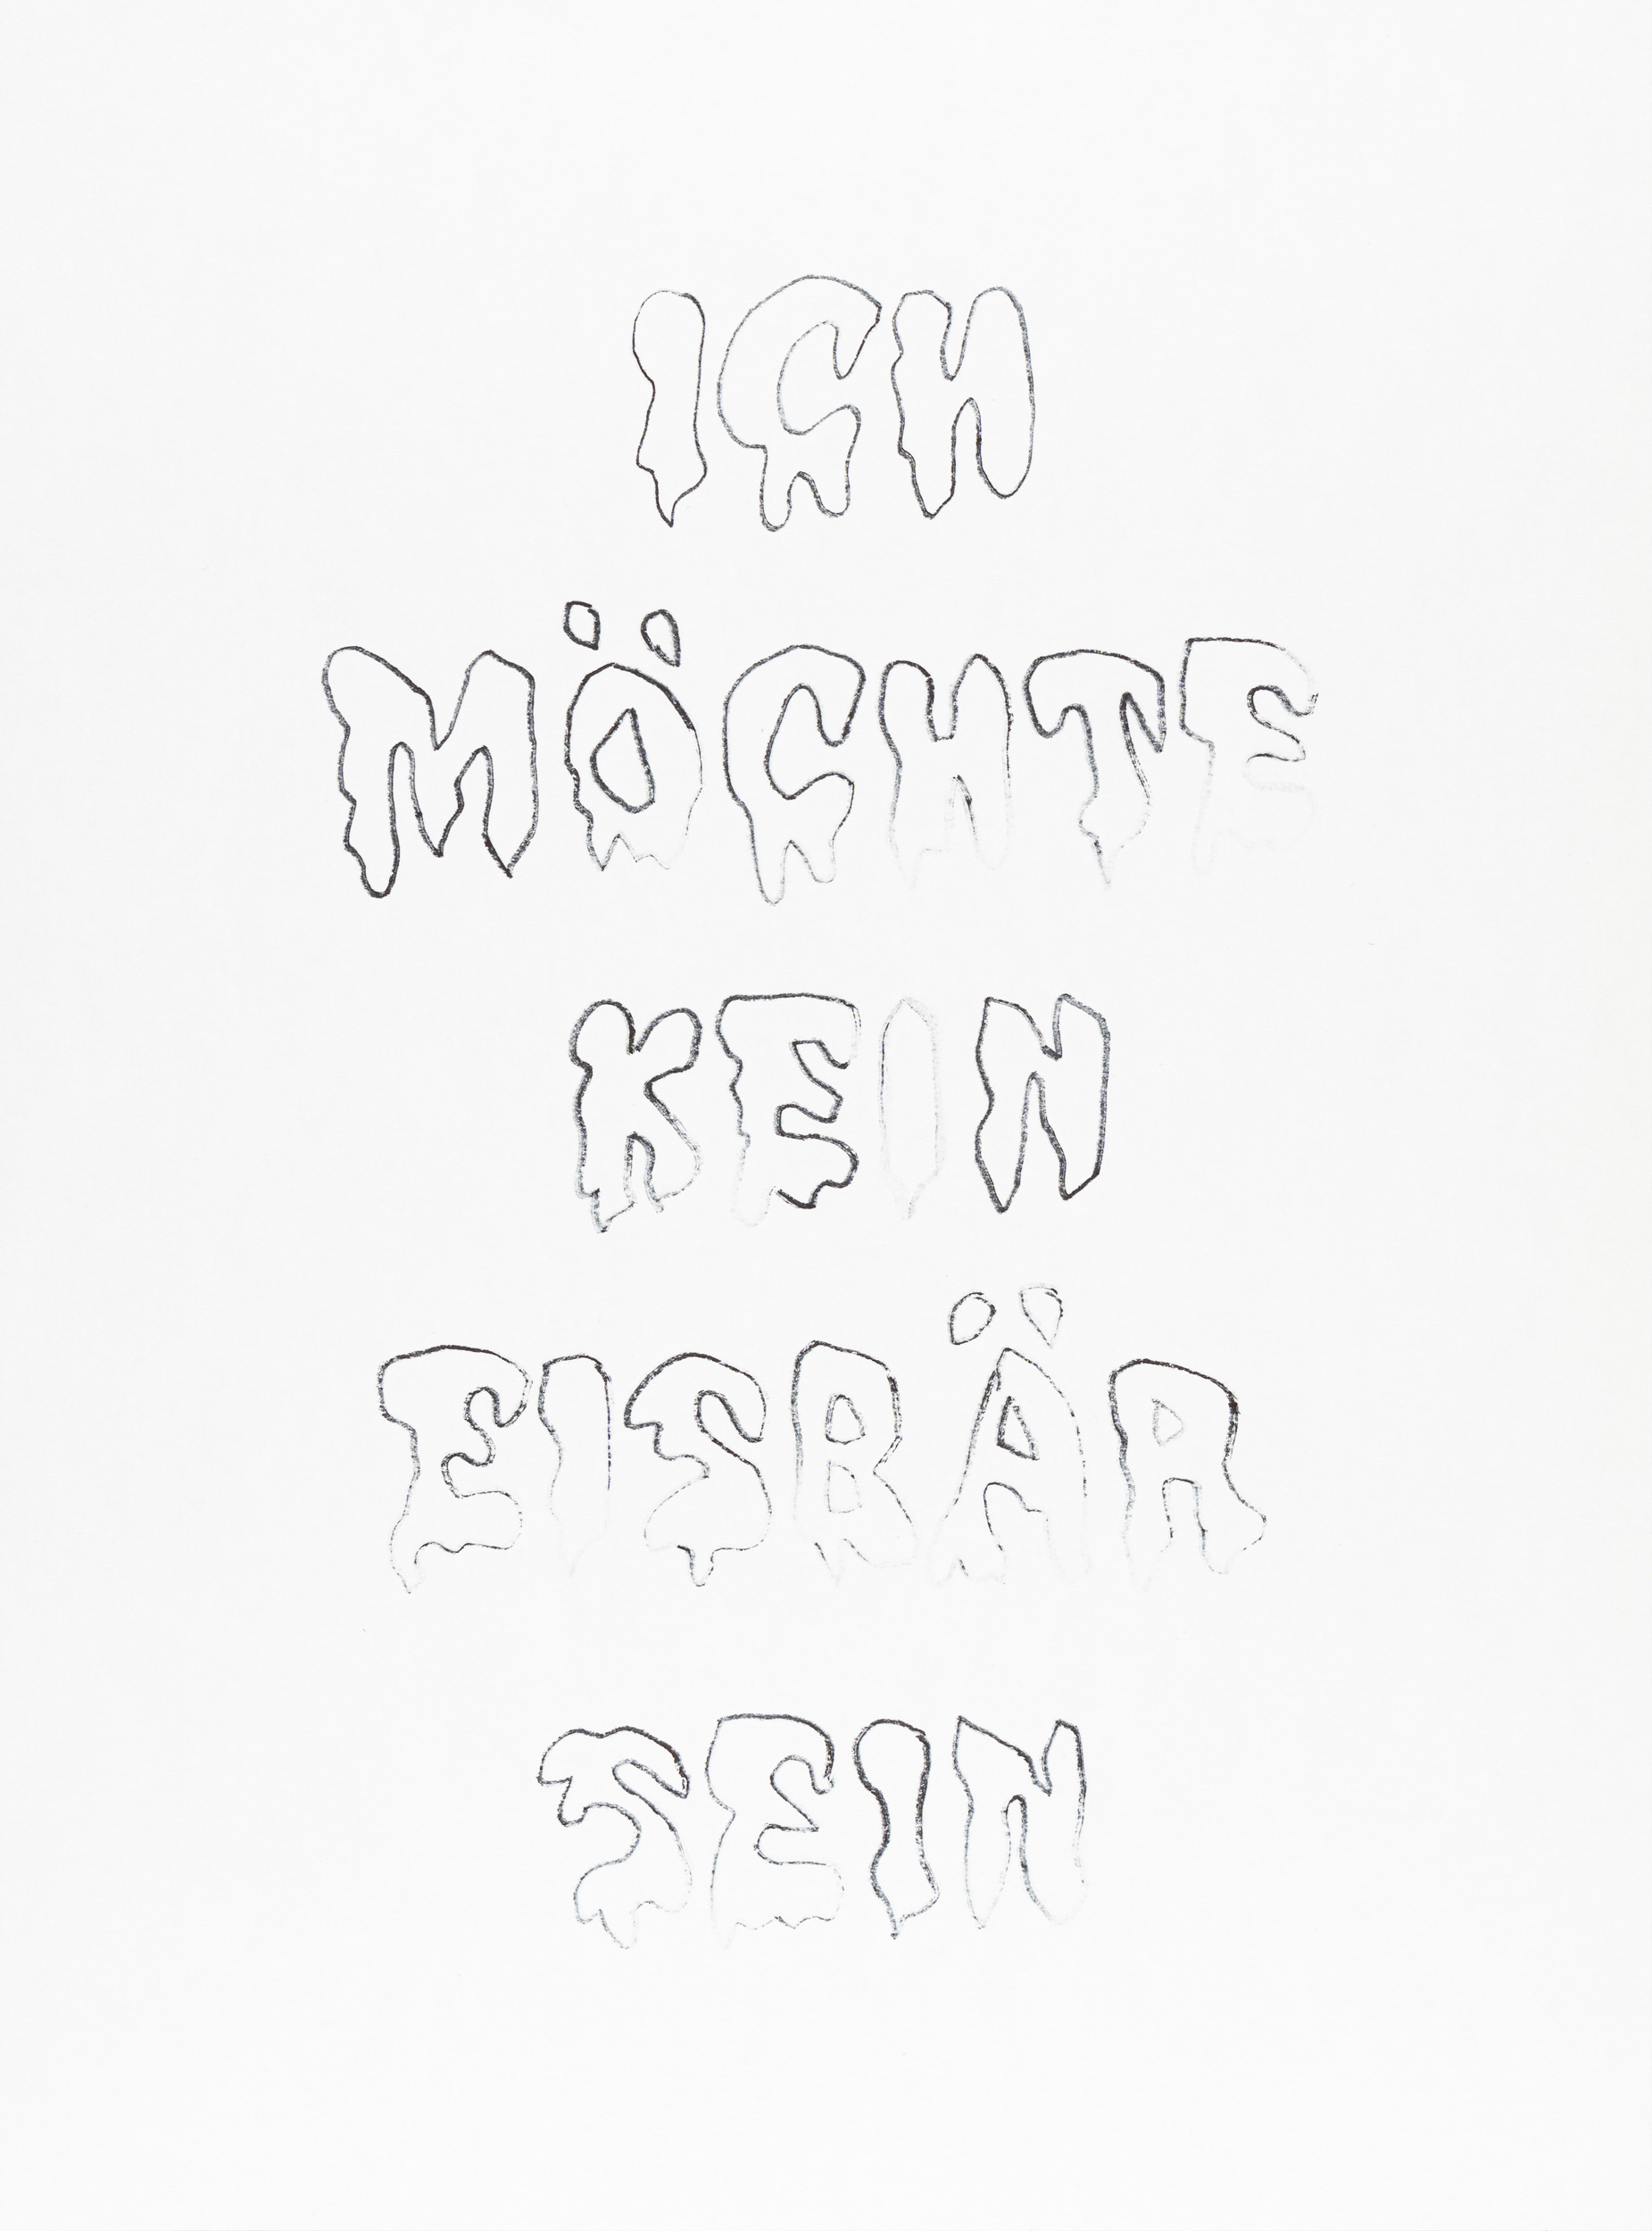 ICH
MÖCHTE
KEIN
EISBÄR
SEIN